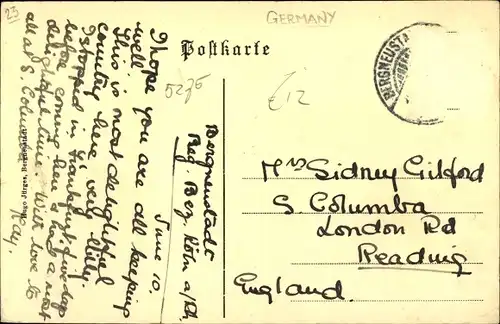 23
GERMANY
Postkarte
5275
€12
BERGNEUSTA
Bergneustadt
Reg. Bez. Köln a/Rh.
June 10.
I hope you are all keeping
well. This is most delightful
country here & very hilly.
I stopped in Frankfurt for
before coming here & had a most
delightful time. With love to
all at S. Columba
Kay.
Mrs Sidney Gilford
S. Columba
London Rd
Reading
England.